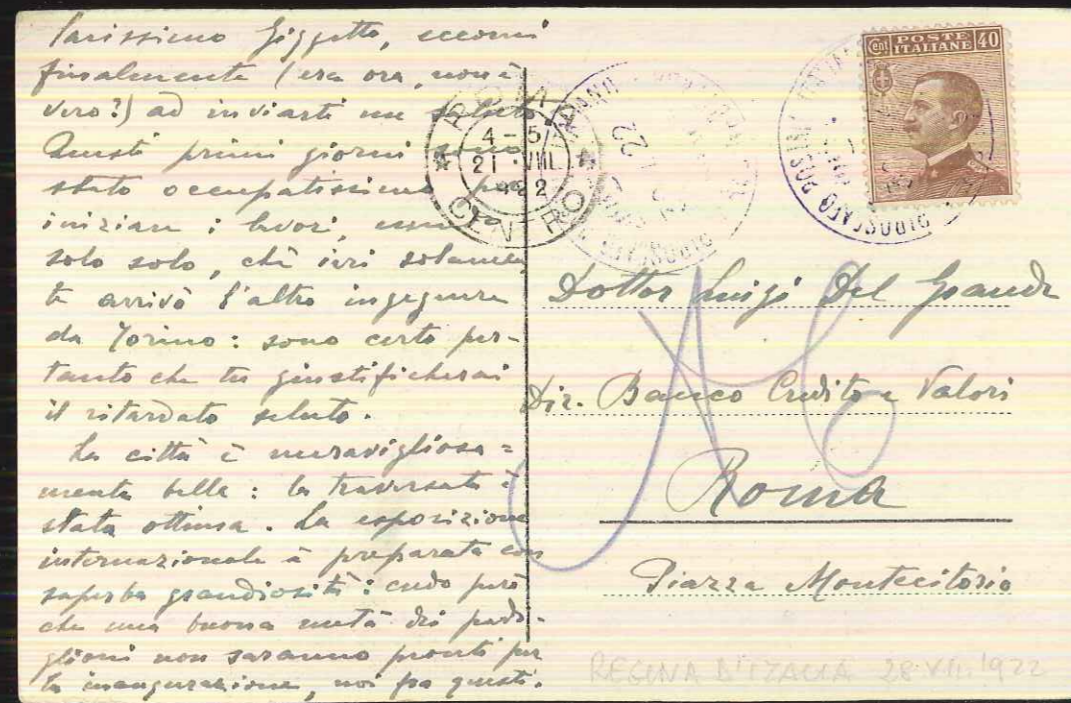 Carissimo Giggetto, eccomi
finalmente (era ora, non è
vero?) ad inviarti un saluto.
Questi primi giorni sono
stato occupatissimo per
iniziare i lavori,
solo solo, chè ieri solamen
te arrivò l'altro ingegnere
da Torino: sono certo per-
tanto che tu giustificherai
il ritardato saluto.
La città è meravigliosa=
mente bella: la traversata è
stata ottima. La esposizione
internazionale è preparata con
superba grandiosità: credo però
che una buona metà dei padi-
glioni non saranno pronti per
la inaugurazione, noi fra questi.
Cent POSTE ITALIANE 40
ROMA
4-5
21 · VIII.
922
CENTRO
PIROSCAFO POSTALE
22
PIROSCAFO POSTALE ITALIANO
Dottor Luigi Del Grande
Dir. Banco Credito e Valori
Roma
Piazza Montecitorio
REGINA D'ITALIA 28.VII.1922